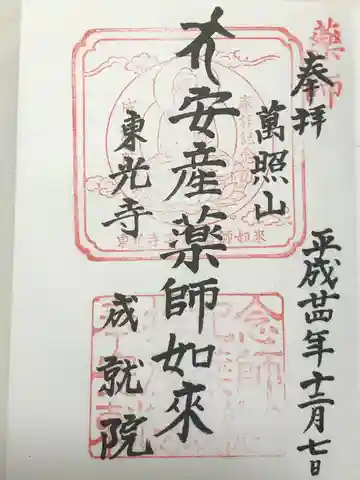 薬師
奉拝
平成廿四年十二月七日
萬照山
安産薬師如来
東光寺
成就院